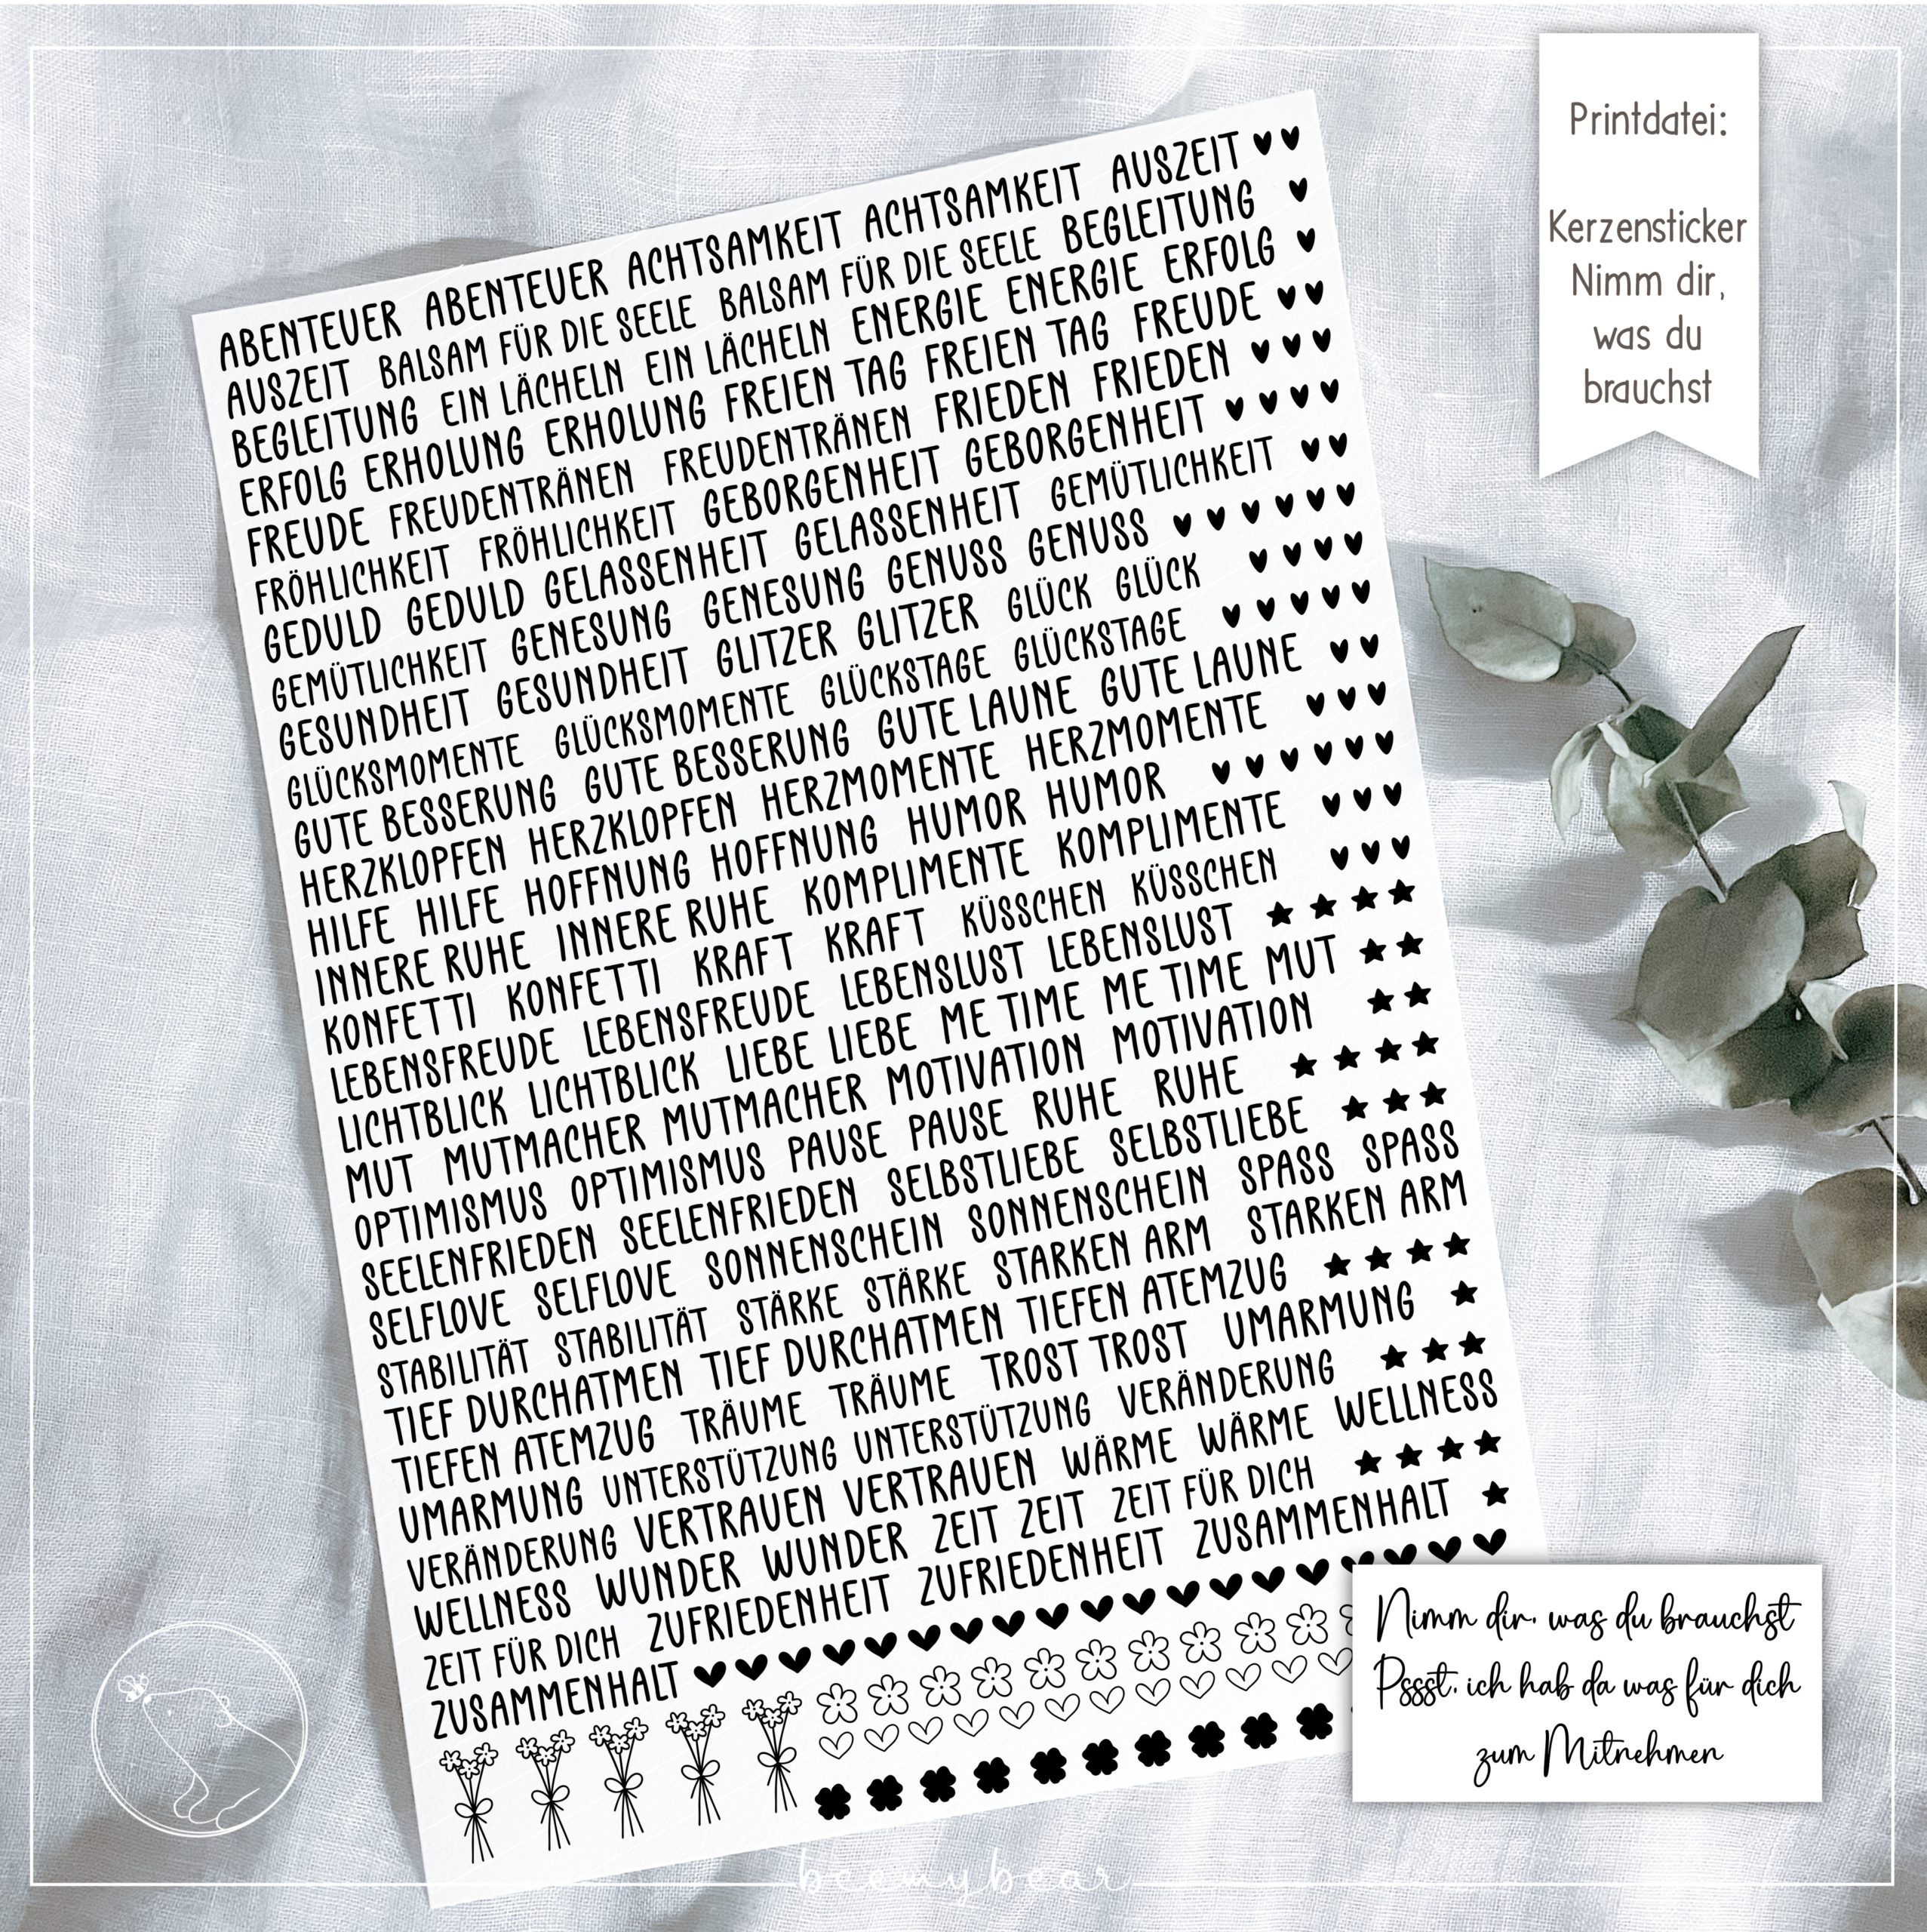 ABENTEUER ABENTEUER ACHTSAMKEIT ACHTSAMKEIT AUSZEIT
AUSZEIT BALSAM FÜR DIE SEELE BALSAM FÜR DIE SEELE BEGLEITUNG
BEGLEITUNG EIN LÄCHELN EIN LÄCHELN ENERGIE ENERGIE ERFOLG
ERFOLG ERHOLUNG ERHOLUNG FREIEN TAG FREIEN TAG FREUDE
FREUDE FREUDENTRÄNEN FREUDENTRÄNEN FRIEDEN FRIEDEN
FRÖHLICHKEIT FRÖHLICHKEIT GEBORGENHEIT GEBORGENHEIT
GEDULD GEDULD GELASSENHEIT GELASSENHEIT GEMÜTLICHKEIT
GEMÜTLICHKEIT GENESUNG GENESUNG GENUSS GENUSS
GESUNDHEIT GESUNDHEIT GLITZER GLITZER GLÜCK GLÜCK
GLÜCKSMOMENTE GLÜCKSMOMENTE GLÜCKSTAGE GLÜCKSTAGE
GUTE BESSERUNG GUTE BESSERUNG GUTE LAUNE GUTE LAUNE
HERZKLOPFEN HERZKLOPFEN HERZMOMENTE HERZMOMENTE
HILFE HILFE HOFFNUNG HOFFNUNG HUMOR HUMOR
INNERE RUHE INNERE RUHE KOMPLIMENTE KOMPLIMENTE
KONFETTI KONFETTI KRAFT KRAFT KÜSSCHEN KÜSSCHEN
LEBENSFREUDE LEBENSFREUDE LEBENSLUST LEBENSLUST
LICHTBLICK LICHTBLICK LIEBE LIEBE ME TIME ME TIME MUT
MUT MUTMACHER MUTMACHER MOTIVATION MOTIVATION
OPTIMISMUS OPTIMISMUS PAUSE PAUSE RUHE RUHE
SEELENFRIEDEN SEELENFRIEDEN SELBSTLIEBE SELBSTLIEBE
SELFLOVE SELFLOVE SONNENSCHEIN SONNENSCHEIN SPASS SPASS
STABILITÄT STABILITÄT STÄRKE STÄRKE STARKEN ARM STARKEN ARM
TIEF DURCHATMEN TIEF DURCHATMEN TIEFEN ATEMZUG
TIEFEN ATEMZUG TRÄUME TRÄUME TROST TROST UMARMUNG
UMARMUNG UNTERSTÜTZUNG UNTERSTÜTZUNG VERÄNDERUNG
VERÄNDERUNG VERTRAUEN VERTRAUEN WÄRME WÄRME WELLNESS
WELLNESS WUNDER WUNDER ZEIT ZEIT ZEIT FÜR DICH
ZEIT FÜR DICH ZUFRIEDENHEIT ZUFRIEDENHEIT ZUSAMMENHALT
ZUSAMMENHALT
Printdatei:
Kerzensticker
Nimm dir,
was du
brauchst
Nimm dir, was du brauchst
Pssst, ich hab da was für dich
zum Mitnehmen
beemybear